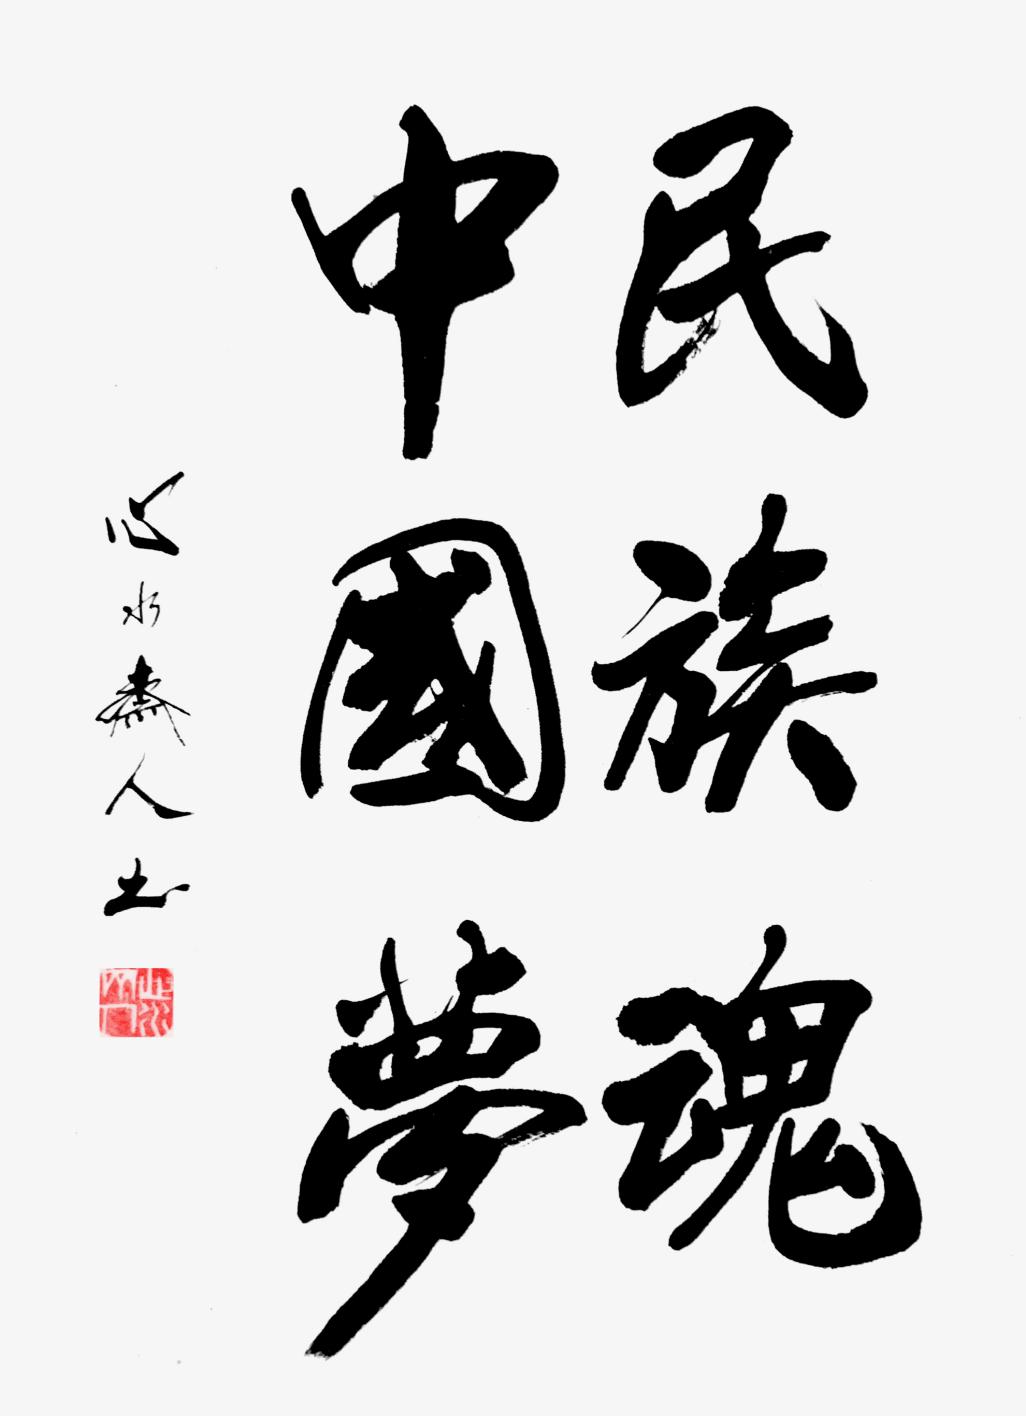 民族魂
中國夢
心水齋人书